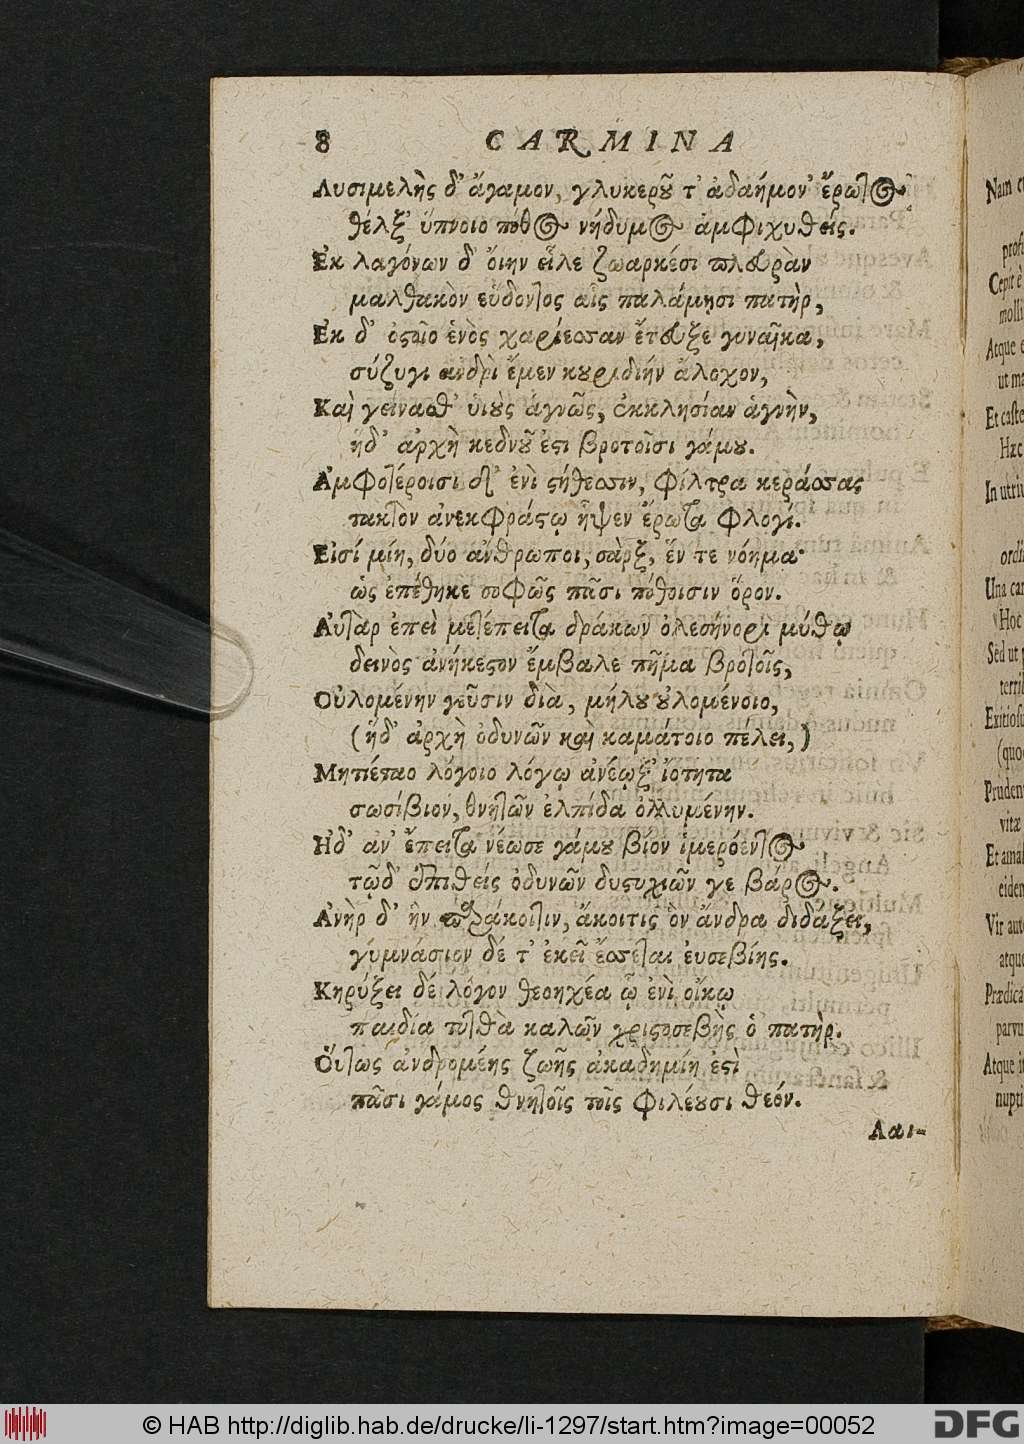 8 CARMINA
Λυσιμελὴς δ' ἄγαμον, γλυκεροῦ τ' ἀδαήμον' ἔρωτος
θέλξ' ὕπνοιο πόθος νήδυμος ἀμφιχυθείς.
Ἐκ λαγόνων δ' ὄιην εἷλε ζωαρκέσι πλευρὰν
μαλθακὸν εὕδοντος αἷς παλάμῃσι πατὴρ,
Ἐκ δ' ὀστοῖο ἑνὸς χαρίεσσαν ἔτευξε γυναῖκα,
σύζυγι ανδρὶ ἔμεν κουριδιήν ἄλοχον,
Καὶ γείνασθ' ὑιοὺς ἁγνῶς, ἐκκλησίαν ἁγνὴν,
ἥδ' ἀρχὴ κεδνοῦ ἐστι βροτοῖσι γάμου.
Ἀμφοτέροισι δ' ἐνὶ στήθεσσιν, φίλτρα κεράσσας
τακτὸν ἀνεκφράστῳ ἧψεν ἔρωτα φλογί.
Εἰσί μίη, δύο ἄνθρωποι, σὰρξ, ἕν τε νόημα·
ὡς ἐπέθηκε σοφῶς πᾶσι πόθοισιν ὅρον.
Αὐτὰρ ἐπεὶ μετέπειτα δράκων ὀλεσήνορι μύθῳ
δεινὸς ἀνήκεστον ἔμβαλε πῆμα βροτοῖς,
Οὐλομένην γεῦσιν διὰ, μήλου οὐλομένοιο,
(ἥδ' ἀρχὴ ὀδυνῶν καὶ καμάτοιο πέλει,)
Μητιέταο λόγοιο λόγῳ ἀνέῳξ' ἰότητα
σωσίβιον, θνητῶν ἐλπίδα ὀλλυμένην.
Ἠδ' ἀν' ἔπειτα νέωσε γάμου βίον ἱμερόεντος
τῷδ' ἐπιθείς ὀδυνῶν δυστυχιῶν γε βάρος.
Ἀνὴρ δ' ἣν παράκοιτιν, ἄκοιτις ὃν ἄνδρα διδάξει,
γύμνάσιον δέ τ' ἐκεῖ ἔσσεται ἐυσεβίης.
Κηρύξει δέ λόγον θεοηχέα ᾧ ἐνὶ οἴκῳ
παιδία τυτθὰ καλῶν χριστοσεβὴς ὁ πατὴρ.
Ὅυτως ἀνδρομέης ζωῆς ἀκαδημίη ἐστὶ
πᾶσι γάμος θνητοῖς τοῖς φιλέουσι θεόν.
Λαι-
© HAB http://diglib.hab.de/drucke/li-1297/start.htm?image=00052
DFG